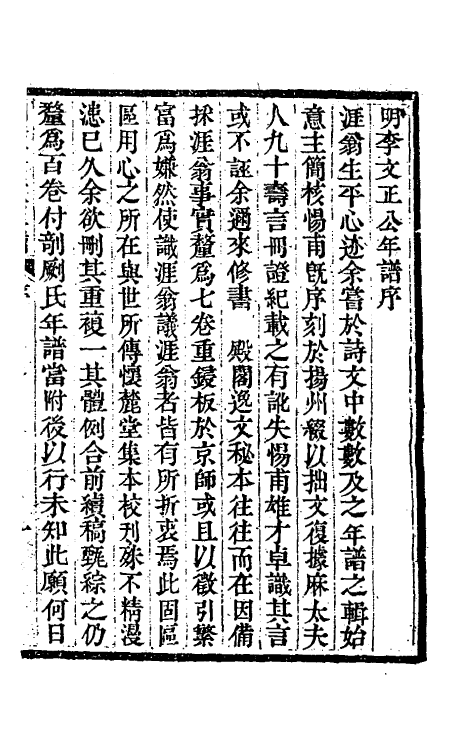 明李文正公年譜序
涯翁生平心迹余嘗於詩文中數數及之年譜之輯始
意主簡核惕甫旣序刻於揚州綴以拙文復據麻太夫
人九十壽言冊證紀載之有訛失惕甫雄才卓識其言
或不誣余邇來修書　殿閣逸文秘本往往而在因備
採涯翁事實釐爲七卷重鋟板於京師或且以徵引繁
富爲嫌然使識涯翁議涯翁者皆有所折衷焉此固區
區用心之所在與世所傳懷麓堂集本校刋殊不精漫
漶已久余欲刪其重複一其體例合前續稿甄綜之仍
釐爲百卷付剞劂氏年譜當附後以行未知此願何日